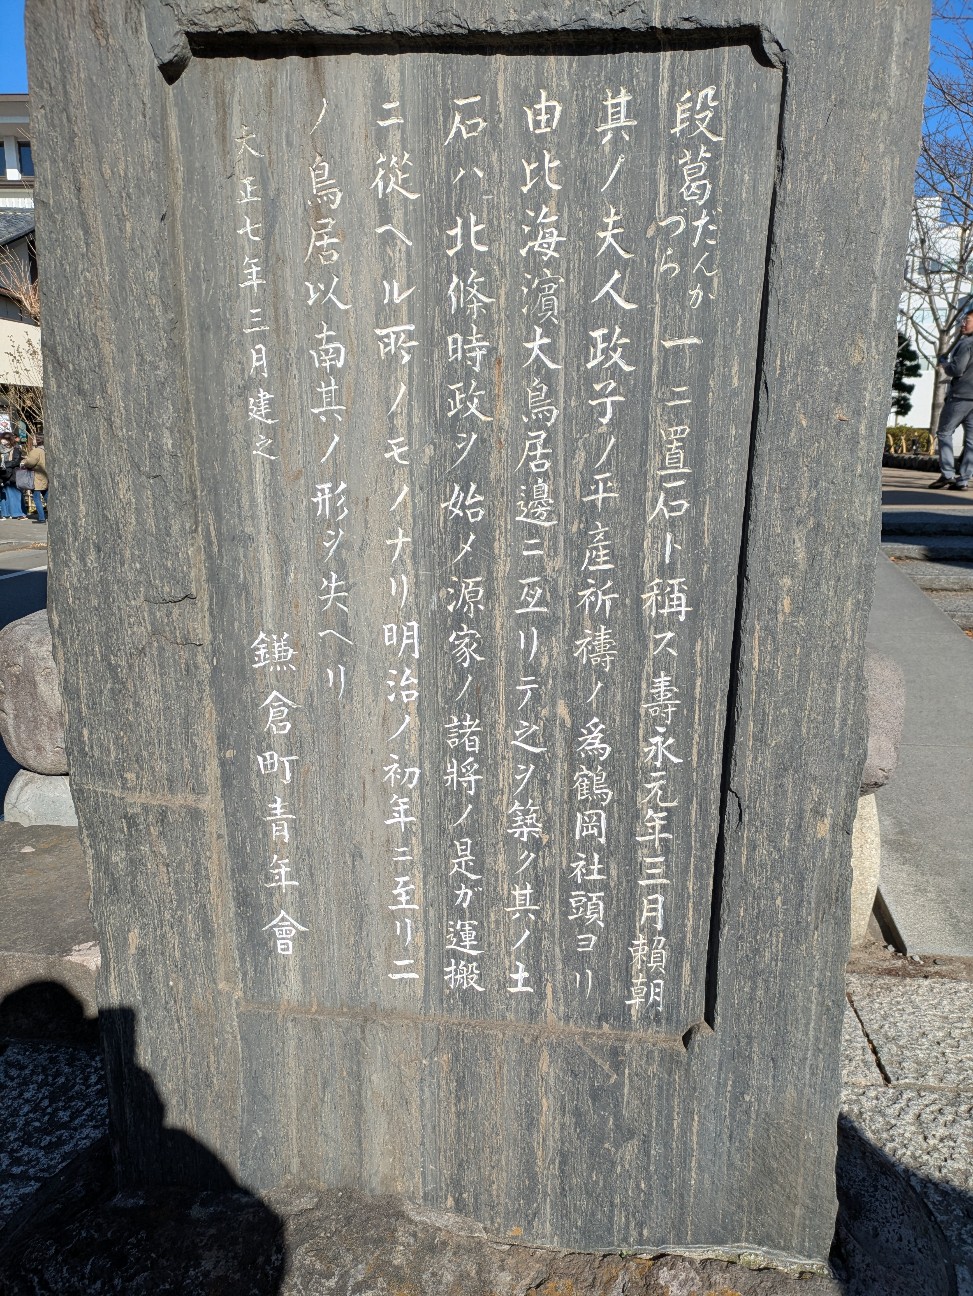 段葛だんかつらー一ニ置石ト稱ス壽永元年三月賴朝
其ノ夫人政子ノ平產祈禱ノ爲鶴岡社頭ヨリ
由比海濱大鳥居邊ニ亙リテ之ヲ築ク其ノ土
石ハ北條時政ヲ始メ源家ノ諸將ノ是ガ運搬
ニ從ヘル所ノモノナリ明治ノ初年ニ至リ二
ノ鳥居以南其ノ形ヲ失ヘリ
大正七年三月建之
鎌倉町青年會